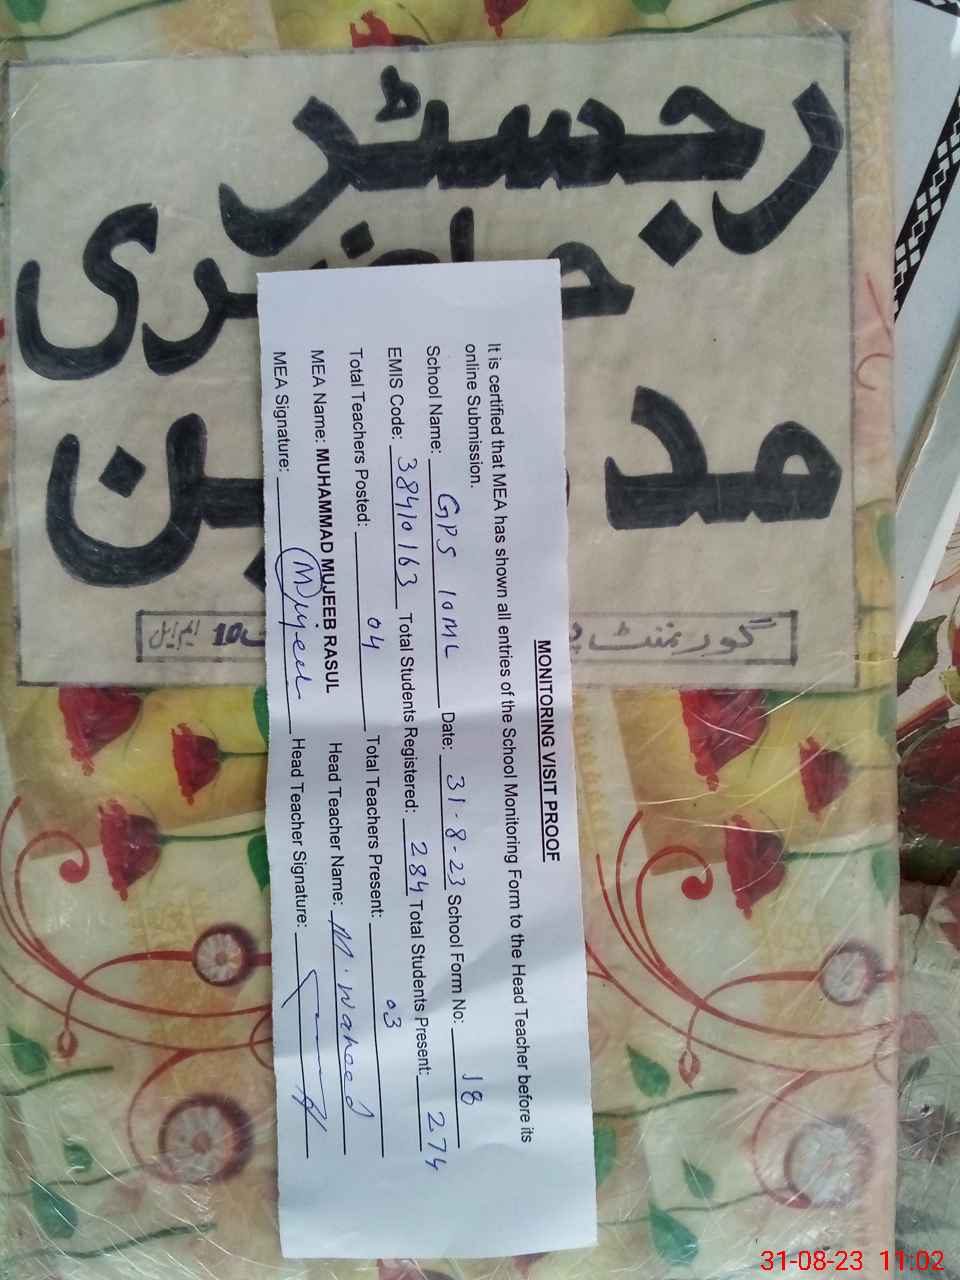 رجسٹر
حاضری
مدرسین
گورنمنٹ
10 ایم ایل
MONITORING VISIT PROOF
It is certified that MEA has shown all entries of the School Monitoring Form to the Head Teacher before its
online Submission.
School Name: GPS 10ML Date: 31-8-23 School Form No: 18
EMIS Code: 38410163 Total Students Registered: 284 Total Students Present: 274
Total Teachers Posted: 04 Total Teachers Present: 03
MEA Name: MUHAMMAD MUJEEB RASUL Head Teacher Name: M. Waheed
MEA Signature: Mujeeb Head Teacher Signature:
31-08-23 11:02